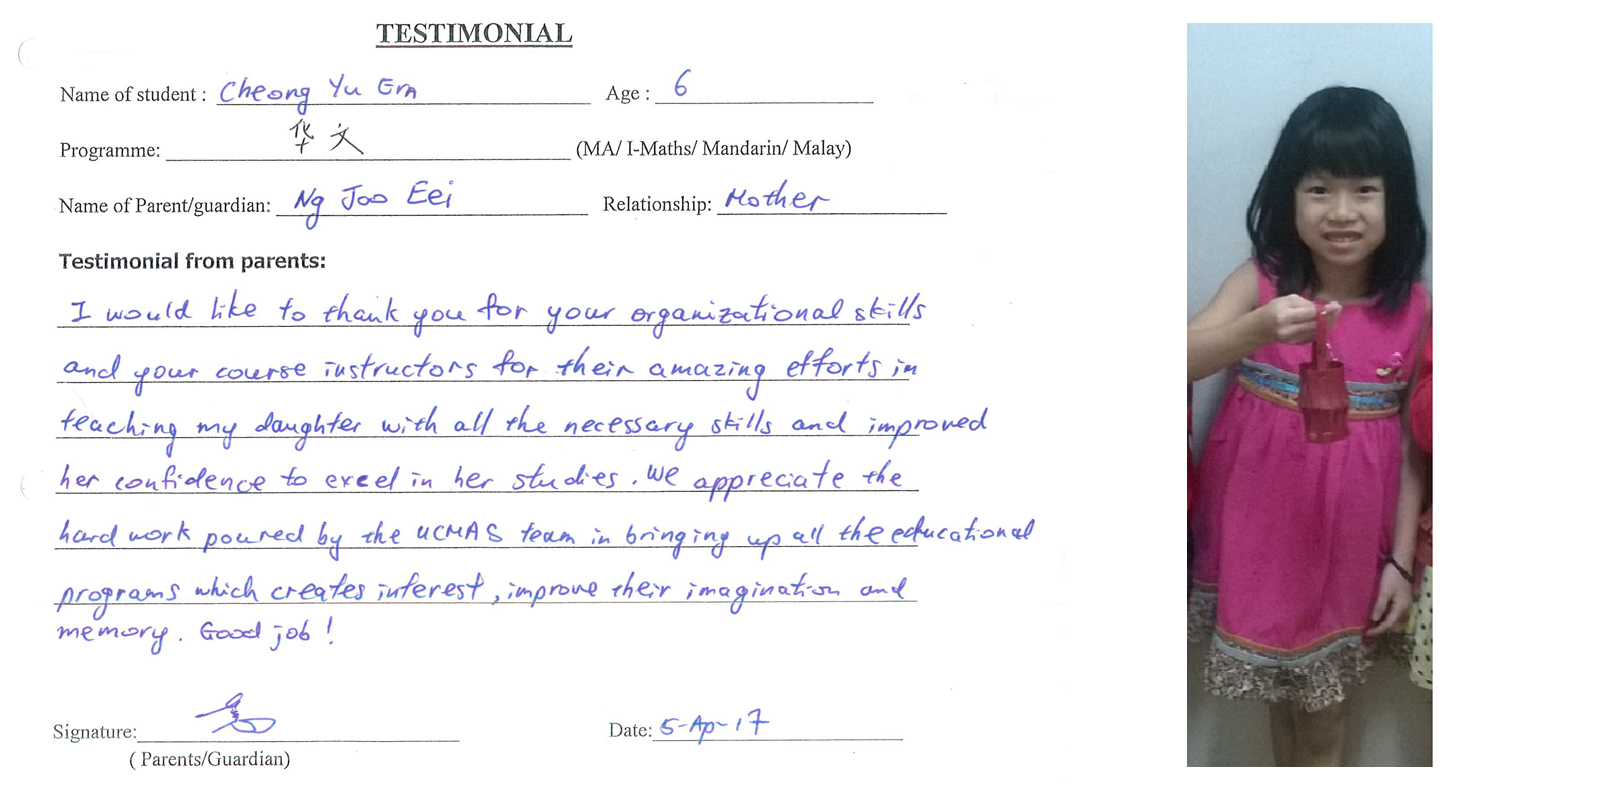 TESTIMONIAL
Name of student : Cheong Yu Em Age : 6
Programme: 华文 (MA/ I-Maths/ Mandarin/ Malay)
Name of Parent/guardian: Ng Joo Eei Relationship: Mother
Testimonial from parents:
I would like to thank you for your organizational skills
and your course instructors for their amazing efforts in
teaching my daughter with all the necessary skills and improved
her confidence to excel in her studies. We appreciate the
hard work poured by the UCMAS team in bringing up all the educational
programs which creates interest, improve their imagination and
memory. Good job !
Signature: Date: 5-Ap-17
( Parents/Guardian)